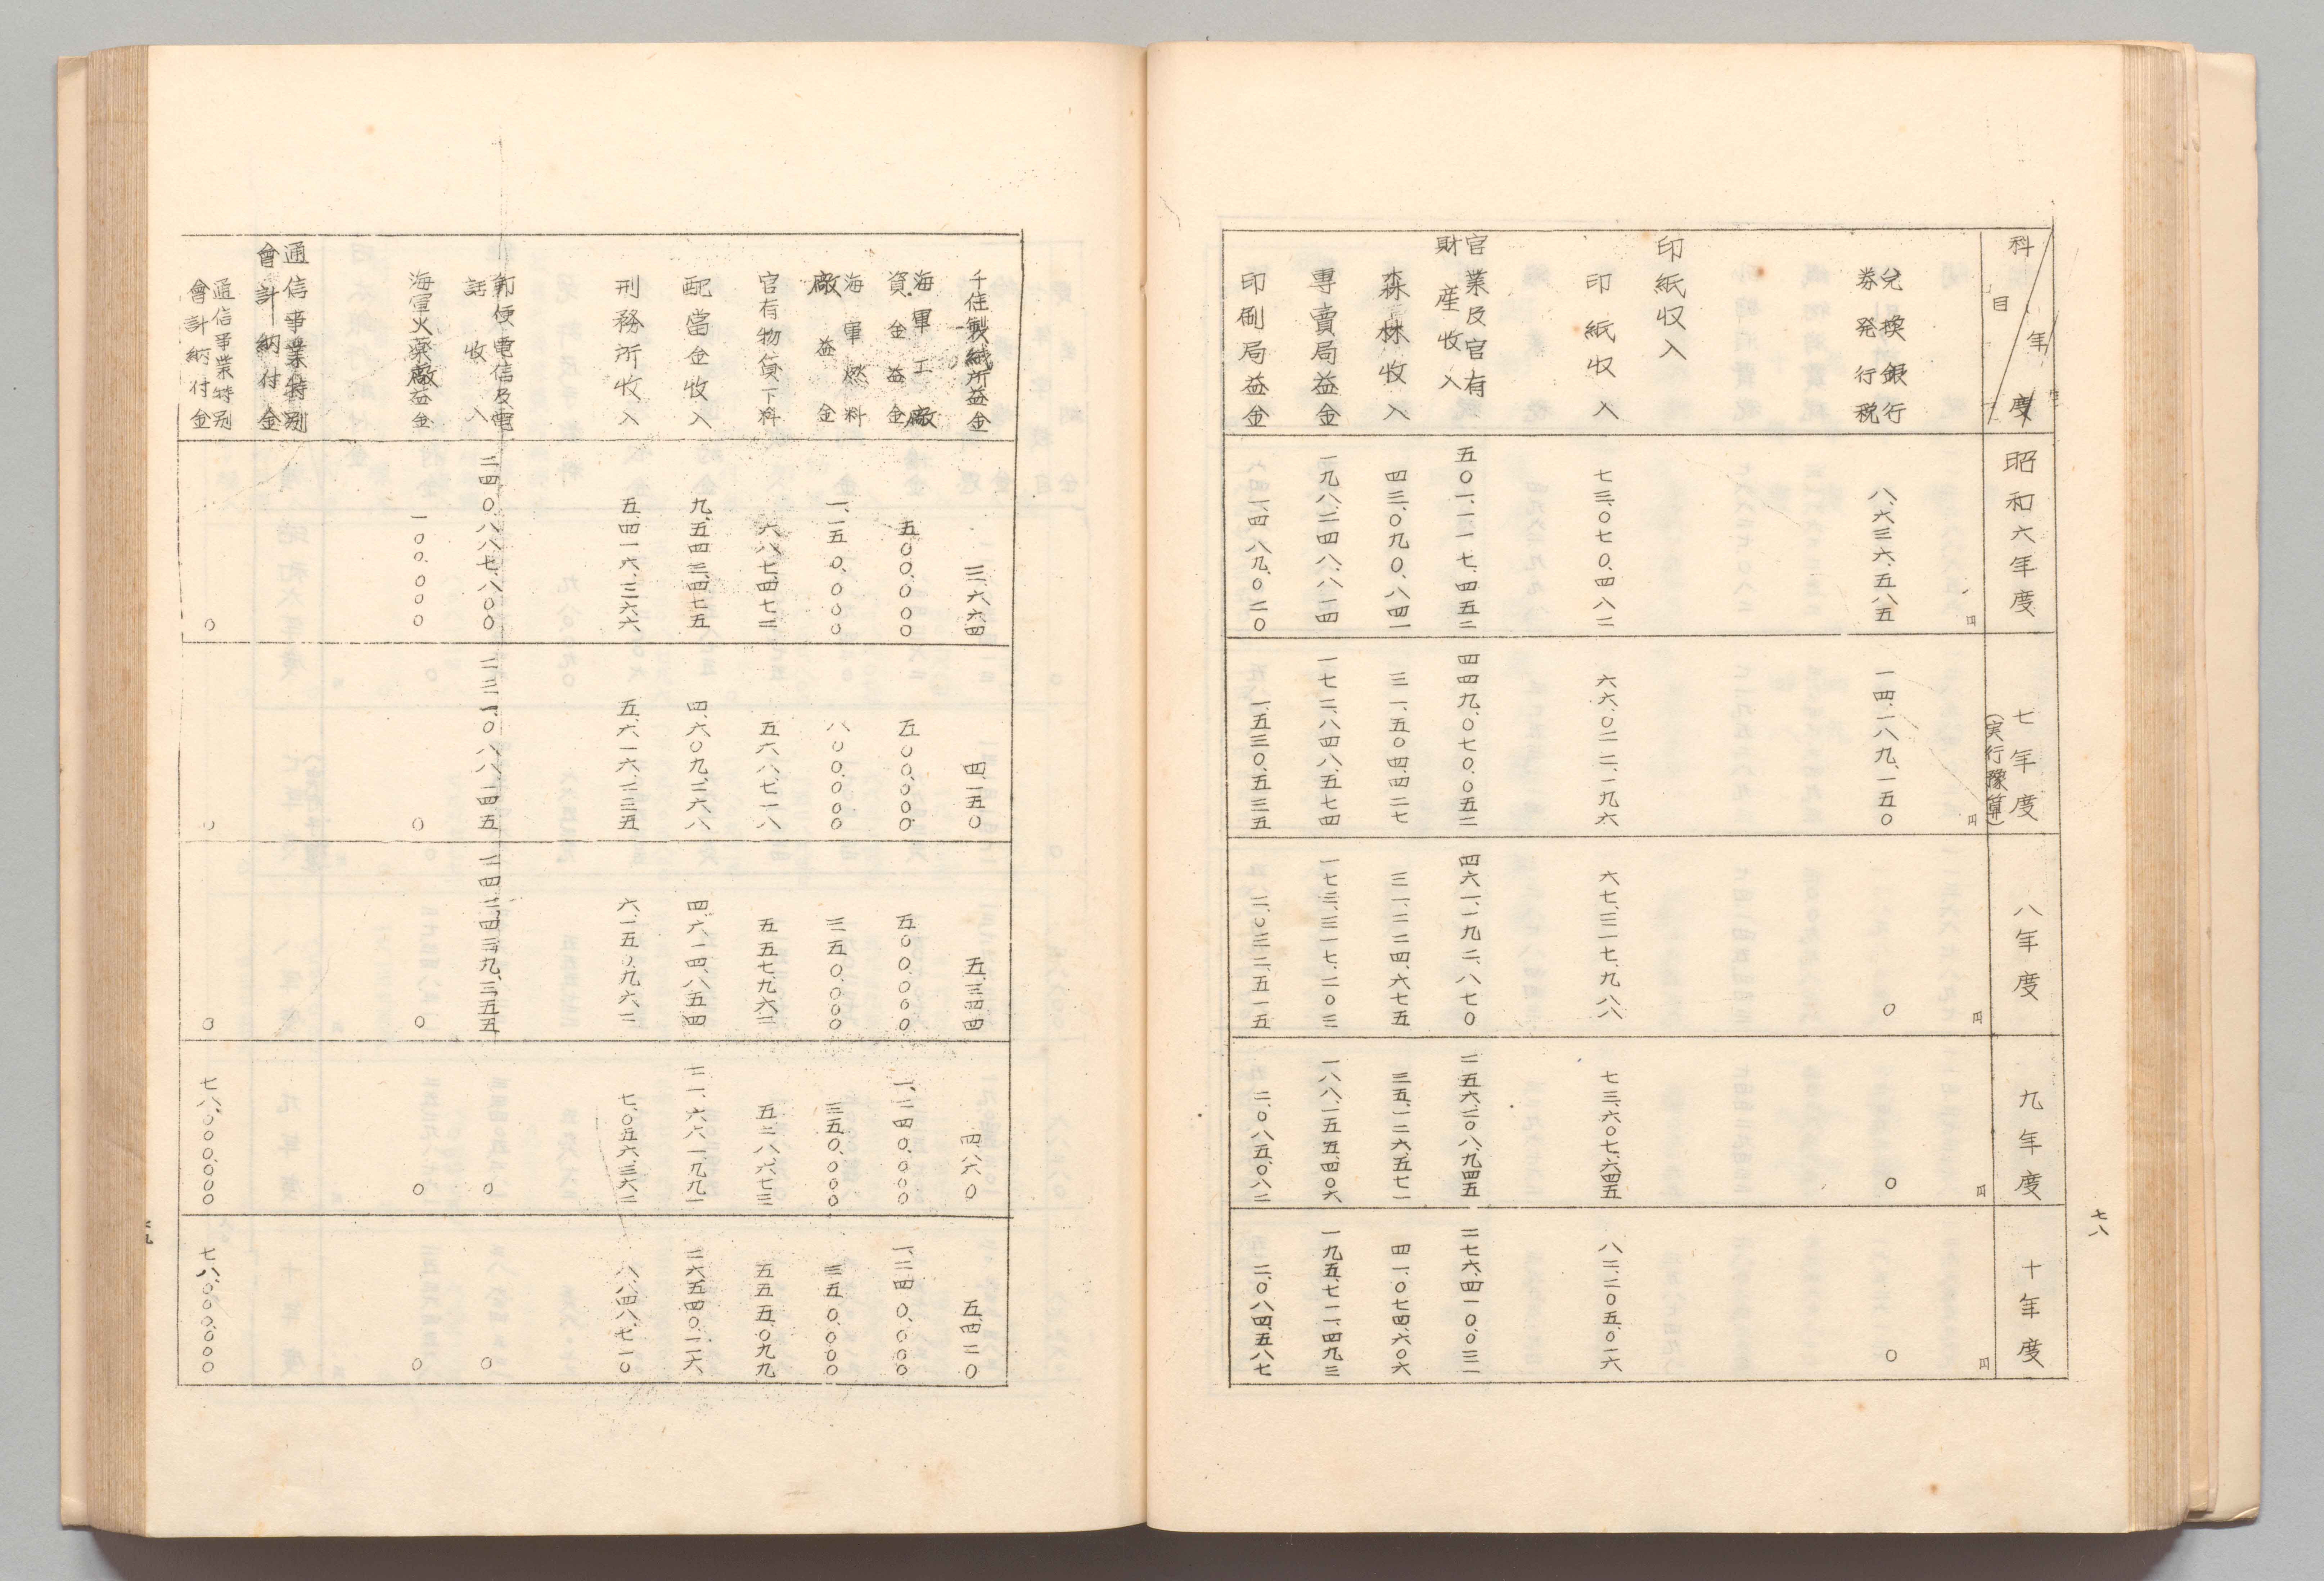 七八
科目 年度
昭和六年度 円
七年度 (実行豫算) 円
八年度 円
九年度 円
十年度 円
兌換銀行
券発行税
八、六三六、五八五
一四、一八九、一五〇
〇
〇
〇
印紙収入
印紙収入
七三、〇七〇、四八二
六六、〇二二、一九六
六七、三一七、九八八
七三、六〇七、六四五
八二、二〇五、〇一六
官業及官有
財産收入
五〇一、一一七、四五二
四四九、〇七〇、〇五二
四六一、一九二、八七〇
二五六、二〇八、九四五
二七六、四一〇、〇三一
森林收入
四三、〇九〇、八四一
三一、五〇四、四二七
三一、二二四、六七五
三五、一二六、五七一
四一、〇七四、六〇六
專賣局益金
一九八、二四八、八一四
一七二、八四八、五七四
一七三、三一七、二〇三
一八八、一五五、四〇六
一九五、七一一、四九三
印刷局益金
一、四八九、〇二〇
一、五三〇、五三五
二、〇三二、五一五
二、〇八五、〇八二
二、〇八四、五八七
千住製絨所益金
三、六六四
四、一五〇
五、三四四
四、八六〇
五、四二〇
海軍工廠
資金益金
五〇〇、〇〇〇
五〇〇、〇〇〇
五〇〇、〇〇〇
一、二四〇、〇〇〇
一、二四〇、〇〇〇
海軍燃料
廠益金
一、一五〇、〇〇〇
八〇〇、〇〇〇
三五〇、〇〇〇
三五〇、〇〇〇
三五〇、〇〇〇
官有物貸下料
六八七、四七二
五六八、七一八
五五七、九六二
五二八、六七三
五五五、〇九九
配當金收入
九、五四三、四七五
四、六〇九、二六八
四、六一四、八五四
二一、六六一、九九一
二六、五四〇、一一六
刑務所收入
五、四一六、三六六
五、六一六、二三五
六、一五〇、九六二
七、〇五六、三六二
八、八四八、七一〇
郵便電信及電
話收入
二四〇、八八七、八〇〇
二三一、〇八八、一四五
二四二、四三九、三五五
〇
〇
海軍火薬廠益金
一〇〇、〇〇〇
〇
〇
〇
〇
通信事業特別
會計納付金
通信事業特別
會計納付金
〇
〇
〇
七八、〇〇〇、〇〇〇
七八、〇〇〇、〇〇〇